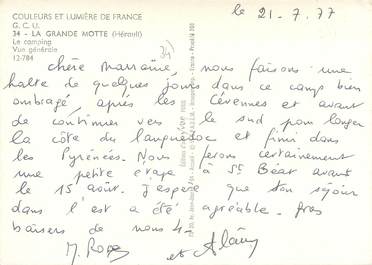 COULEURS ET LUMIÈRE DE FRANCE
G. C. U.
34 - LA GRANDE MOTTE (Hérault)
Le camping
Vue générale
12-784
le 21-7.77
34
chère marraine, nous faisons une
halte de quelques jours dans ce camp bien
ombragé, après les Cévennes et avant
de continuer vers le sud pour longer
la côte du languedoc et finir dans
les Pyrénées. Nous ferons certainement
une petite étape à St Béat avant
le 15 août. J'espère que ton séjour
dans l'est a été agréable. Gros
baisers de nous 4.
et Alain